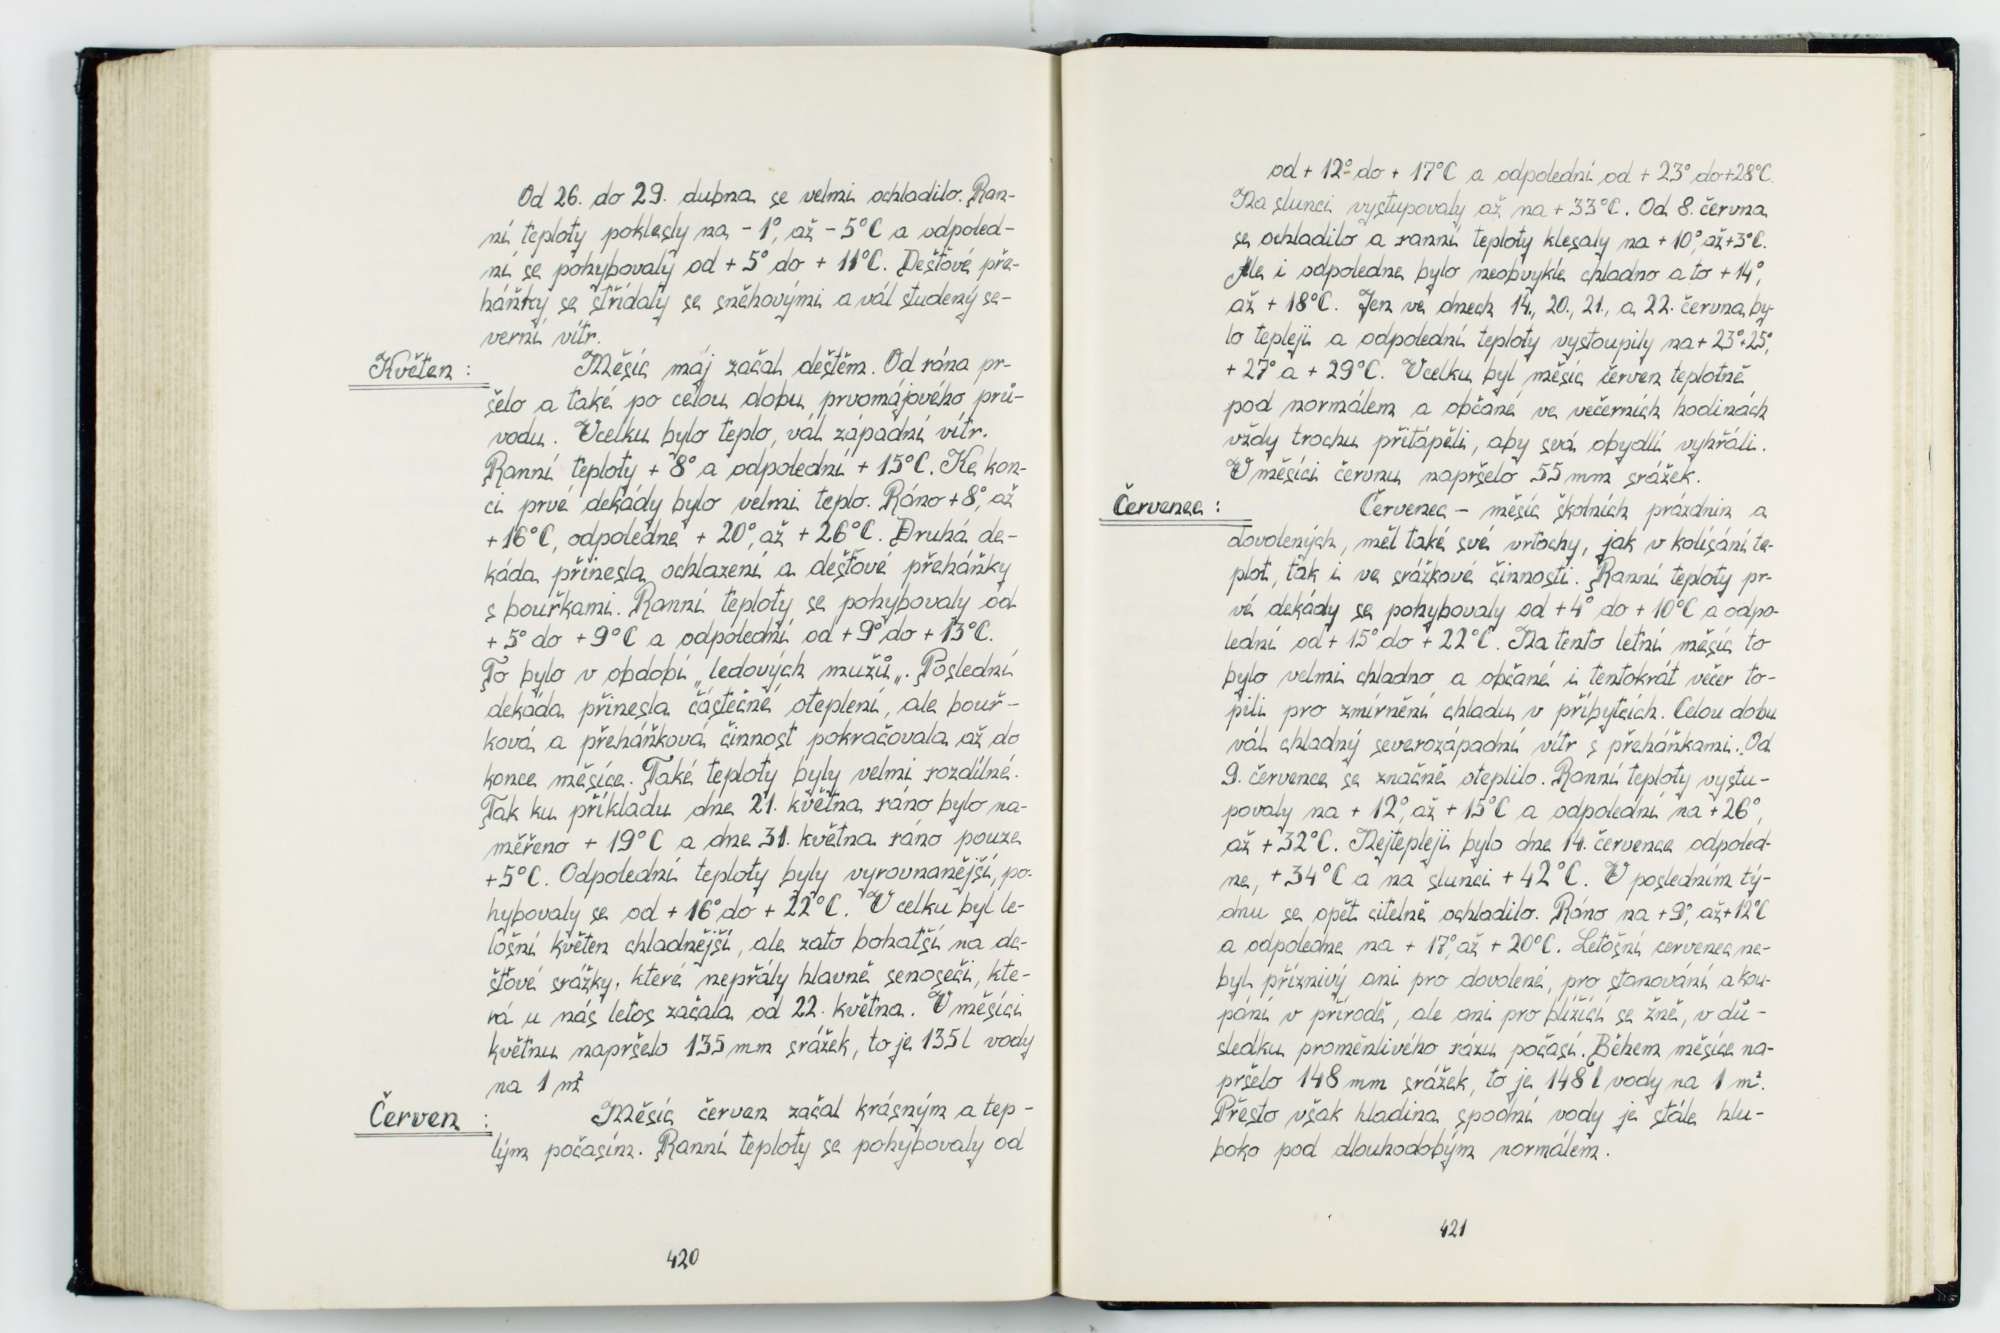 Od 26. do 29. dubna se velmi ochladilo. Ran-
ní teploty poklesly na - 1°, až - 5°C a odpoled-
ní se pohybovaly od + 5° do + 11°C. Dešťové pře-
háňky se střídaly se sněhovými a vál studený se-
verní vítr.
Květen : Měsíc máj začal deštěm. Od rána pr-
šelo a také po celou dobu prvomájového prů-
vodu. Vcelku bylo teplo, vál západní vítr.
Ranní teploty + 8° a odpolední + 15°C. Ke kon-
ci prvé dekády bylo velmi teplo. Ráno + 8°, až
+ 16°C, odpoledne + 20°, až + 26°C. Druhá de-
káda přinesla ochlazení a dešťové přeháňky
s bouřkami. Ranní teploty se pohybovaly od
+ 5° do + 9°C a odpolední od + 9° do + 13°C.
To bylo v období „ledových mužů„. Poslední
dekáda přinesla částečné oteplení, ale bouř-
ková a přeháňková činnost pokračovala až do
konce měsíce. Také teploty byly velmi rozdílné.
Tak ku příkladu dne 21. května ráno bylo na-
měřeno + 19°C a dne 31. května ráno pouze
+ 5°C. Odpolední teploty byly vyrovnanější, po-
hybovaly se od + 16° do + 22°C. V celku byl le-
tošní květen chladnější, ale zato bohatší na de-
šťové srážky, které nepřály hlavně senoseči, kte-
rá u nás letos začala od 22. května. V měsíci
květnu napršelo 135 mm srážek, to je 135 l vody
na 1 m²
Červen : Měsíc červen začal krásným a tep-
lým počasím. Ranní teploty se pohybovaly od
420
od + 12° do + 17°C a odpolední od + 23° do + 28°C.
Na slunci vystupovaly až na + 33°C. Od 8. června
se ochladilo a ranní teploty klesaly na + 10°, až + 3°C.
Ale i odpoledne bylo neobvykle chladno a to + 14°,
až + 18°C. Jen ve dnech 14., 20., 21., a 22. června by-
lo tepleji a odpolední teploty vystoupily na + 23°+25°,
+ 27° a + 29°C. Vcelku byl měsíc červen teplotně
pod normálem a občané ve večerních hodinách
vždy trochu přitápěli, aby svá obydlí vyhřáli.
V měsíci červnu napršelo 55 mm srážek.
Červenec : Červenec - měsíc školních prázdnin a
dovolených, měl také své vrtochy, jak v kolísání te-
plot, tak i ve srážkové činnosti. Ranní teploty pr-
vé dekády se pohybovaly od + 4° do + 10°C a odpo-
lední od + 15° do + 22°C. Na tento letní měsíc to
bylo velmi chladno a občané i tentokrát večer to-
pili pro zmírnění chladu v příbytcích. Celou dobu
vál chladný severozápadní vítr s přeháňkami. Od
9. července se značně oteplilo. Ranní teploty vystu-
povaly na + 12°, až + 15°C a odpolední na + 26°,
až + 32°C. Nejtepleji bylo dne 14. července odpoled-
ne, + 34°C a na slunci + 42°C. V posledním tý-
dnu se opět citelně ochladilo. Ráno na + 9°, až + 12°C
a odpoledne na + 17°, až + 20°C. Letošní červenec ne-
byl příznivý ani pro dovolené, pro stanování a kou-
pání v přírodě, ale ani pro blížící se žně, v dů-
sledku proměnlivého rázu počasí. Během měsíce na-
pršelo 148 mm srážek, to je 148 l vody na 1 m².
Přesto však hladina spodní vody je stále hlu-
boko pod dlouhodobým normálem.
421